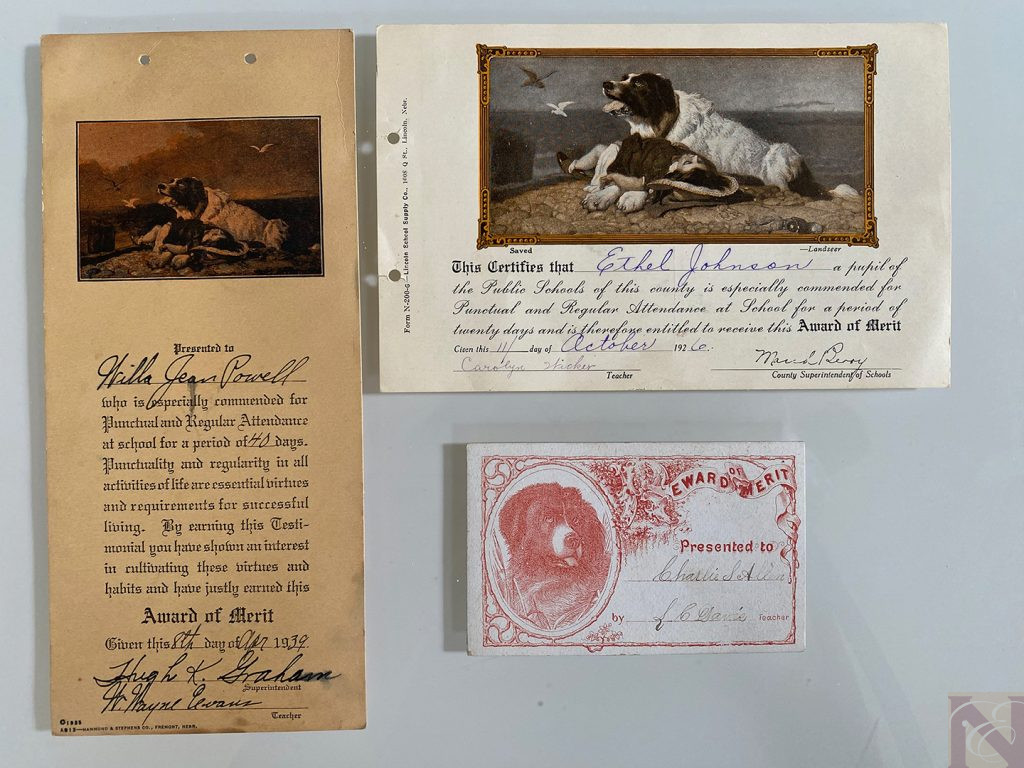 Presented to
Willa Jean Powell
who is especially commended for
Punctual and Regular Attendance
at school for a period of 40 days.
Punctuality and regularity in all
activities of life are essential virtues
and requirements for successful
living. By earning this Testi-
monial you have shown an interest
in cultivating these virtues and
habits and have justly earned this
Award of Merit
Given this 8th day of Apr 1939.
Hugh K. Graham
Superintendent
W. Wayne Evans
Teacher
©1935
A913—HAMMOND & STEPHENS CO., FREMONT, NEBR.
Form N-200-G—Lincoln School Supply Co., 1608 Q St., Lincoln, Nebr.
Saved —Landseer
This Certifies that Ethel Johnson a pupil of
the Public Schools of this county is especially commended for
Punctual and Regular Attendance at School for a period of
twenty days and is therefore entitled to receive this Award of Merit
Given this 11 day of October 1926.
Carolyn Wicker
Teacher
County Superintendent of Schools
REWARD OF MERIT
Presented to
Charlie S Allen
by Teacher
N